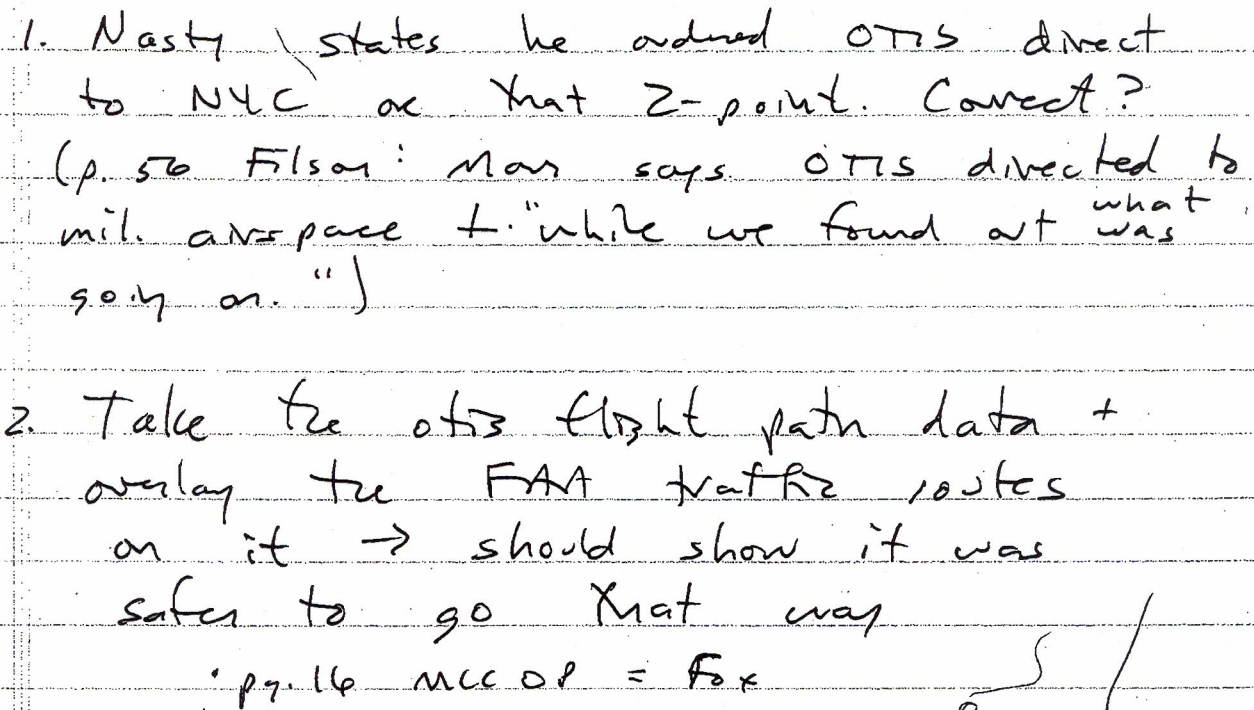 1. Nasty states he ordered OTIS direct
to NYC or that Z-point. Correct?
(p. 56 Filson: Marr says OTIS directed to
mil. airspace + "while we found out what was
going on.")
2. Take the otis flight path data +
overlay the FAA traffic routes
on it → should show it was
safer to go that way
• pg. 16 MCC OP = Fox